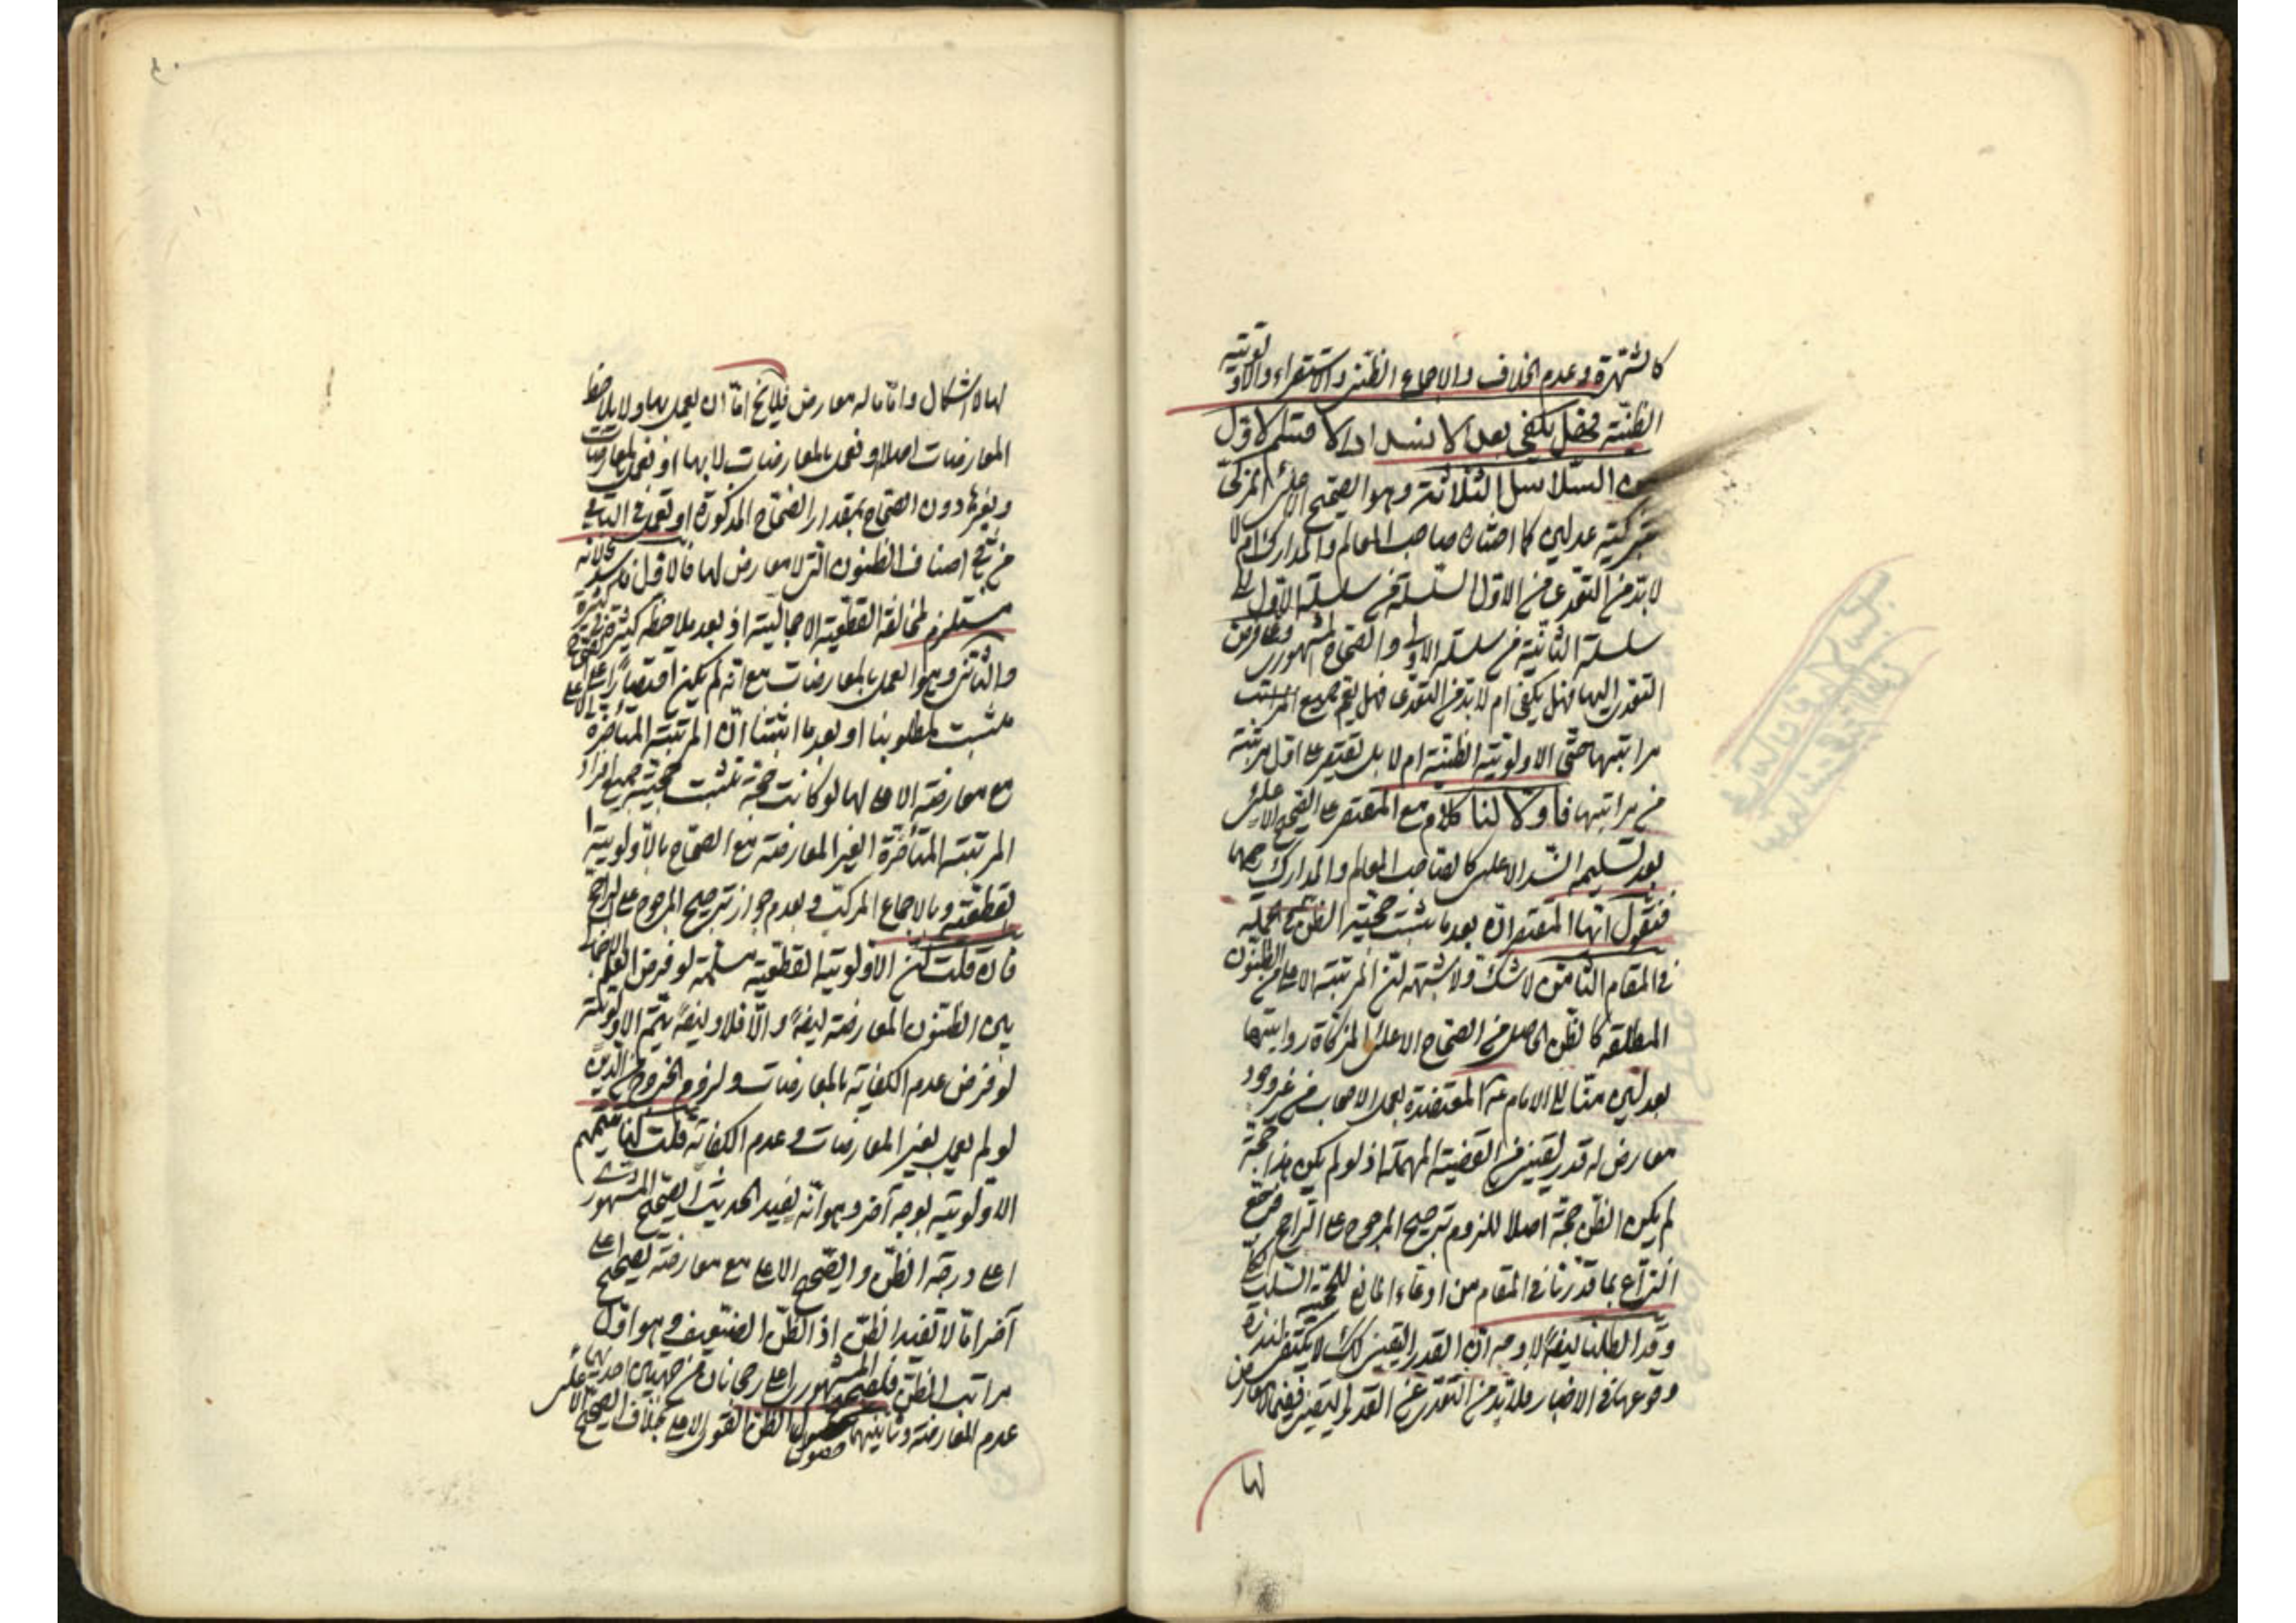 كالشهرة وعدم الخلاف والاجماع الظنى والاستقراء والاولوية
الظنية فهل يكفى بعد الانسداد الاقتصار الاول
السلاسل الثلاثة وهو الصحيح الاعلائى المزكى
بتزكية عدلين كما اختاره صاحب المعالم والمدارك ام لا
لابد من التعدى من الاول السلسلة من سلسلة الاول الى
سلسلة الثانية من سلسلة الاولى والصحاح المشهورى
التعدى اليها فهل يكفى ام لابد من التعدى فهل يعم جميع المراتب
مراتبها حتى الاولوية الظنية ام لا بل يقتصر على اول مرتبة
من مراتبها فاولا لنا كلام مع المقتصر على الصحيح الاعلائى
بعد تسليمه انسداد الاعلى كالصاحب المعالم والمدارك
فنقول ايها المقتصر انه بعد ما يثبت حجية الظن فى الجملة
فى المقام الثامن لا شك ولا شبهة لنا ان المرتبة الاعلى من الظنون
المطلقة كالظن الحاصل من الصحاح الاعلائى المزكاة رواتها
بعدلين منا الى الامام ع المعتضدة بعمل الاصحاب من غير وجود
معارض له قدر يقينى من القضية المهملة اذ لو لم يكن هذا حجة
لم يكن الظن حجة اصلا للزوم ترجيح المرجوح على الراجح
النزاع بما قدرنا فى المقام من ادعاء المانع للحجية السلب
وقد ابطلنا ايضا لا وجه ان القدر اليقينى لا يكتفى لندرة
وقوعها فى الاخبار فلابد من التعدى عن القدر اليقينى
لها
لها لا اشكال واما ما له معارض فلا يخ اما ان يعمل بها ولا يلاحظ
المعارضات اصلا او نعمل بالمعارضات لا بها او نعمل بالمعارضات
وبغيرها دون الصحاح بمقدار الصحاح المذكورة او نعمل فى الباقى
من باقى اصناف الظنون التى لا معارض لها فالاول فاسد لانه
مستلزم لمخالفة القطعية الاجمالية اذ بعد ملاحظة كثرة
والثانى وهو العمل بالمعارضات مع انه لم يكن اقتصارا على
مثبت لمطلوبنا او بعد ما اثبتنا ان المرتبة المتاخرة
مع معارضة الاعلى لها لو كانت حجة تثبت حجية جميع افراد
المرتبة المتاخرة الغير المعارضة مع الصحاح بالاولوية
القطعية وبالاجماع المركب وبعدم جواز ترجيح المرجوح على الراجح
فان قلت ان الاولوية القطعية مسلمة لو فرض العلم الاجمالى
بين الظنون المعارضة ايضا والا فلا وايضا يتم الاولوية
لو فرض عدم الكفاية بالمعارضات ولزوم الخروج من الدين
لو لم يعمل بغير المعارضات وعدم الكفاية قلت
الاولوية بوجه آخر وهو انه يفيد الحديث الصحيح المشهورى
اعلى درجة الظن والصحيح الاعلى مع معارضة لصحيح اعلى
آخر اما لا تفيد الظن او الظن الضعيف وهو اول
مراتب الظن فللصحيح المشهورى اعلى رجحانان من جهتين احديهما
عدم المعارضة وثانيهما حصول الظن القوى الاعلى بخلاف الصحيح الاعلائى